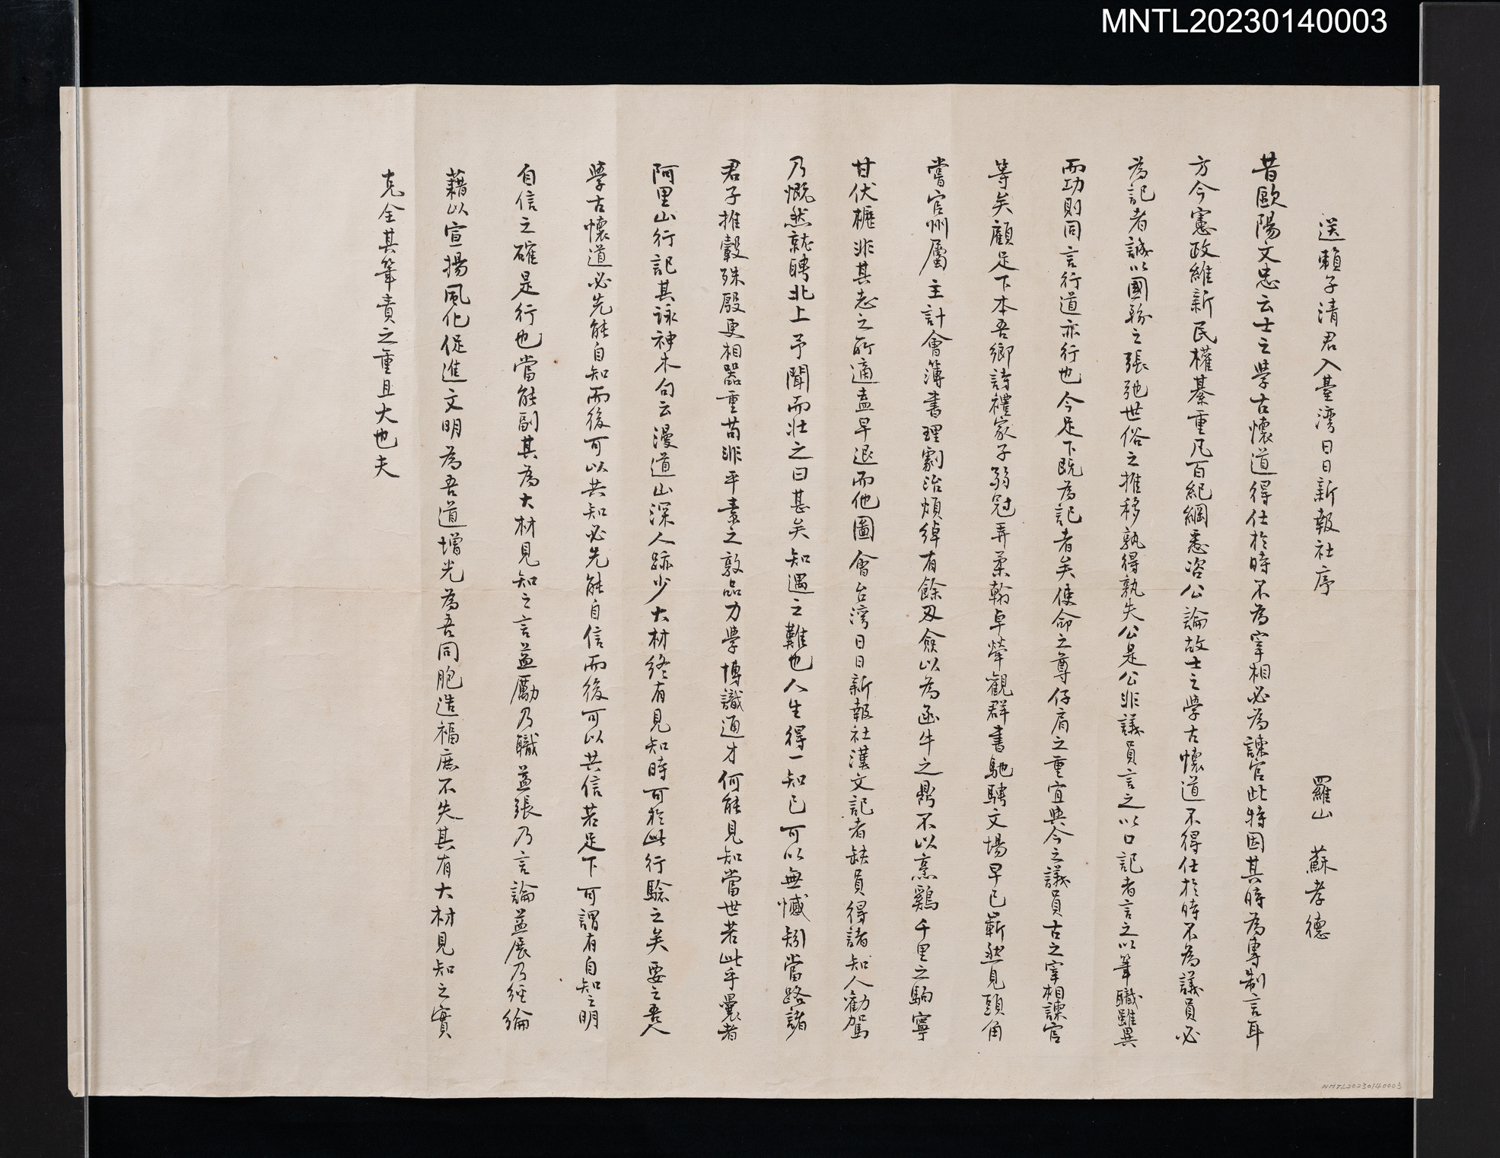 MNTL20230140003
送賴子清君入臺湾日日新報社序
羅山 蘇孝德
昔歐陽文忠云士之學古懷道得仕於時不為宰相必為諫官此特因其時為專制言耳
方今憲政維新民權綦重凡百紀綱悉咨公論故士之學古懷道不得仕於時不為議員必
為記者誠以國務之張弛世俗之推移孰得孰失公是公非議員言之以口記者言之以筆職雖異
而功則同言行道亦行也今足下既為記者矣使命之尊仔肩之重宜與今之議員古之宰相諫官
等矣顧足下本吾鄉詩禮家子弱冠弄柔翰卓犖觀群書馳騁文場早已嶄然見頭角
嘗官州屬主計會簿書理劇治煩綽有餘刃僉以為函牛之鼎不以烹鷄千里之駒寧
甘伏櫪非其志之所適盍早退而他圖會台湾日日新報社漢文記者缺員得諸知人勸駕
乃慨然就聘北上予聞而壯之曰甚矣知遇之難也人生得一知己可以無憾矧當路諸
君子推轂殊殷更相器重苟非平素之敦品力學博識通才何能見知當世若此乎曩者
阿里山行記其詠神木句云漫道山深人跡少大材終有見知時可於此行驗之矣要之吾人
學古懷道必先能自知而後可以共知必先能自信而後可以共信若足下可謂有自知之明
自信之確是行也當能副其為大材見知之言益勵乃職益張乃言論益展乃經綸
藉以宣揚風化促進文明為吾道增光為吾同胞造福庶不失其有大材見知之實
克全其筆責之重且大也夫
NMTL20230140003